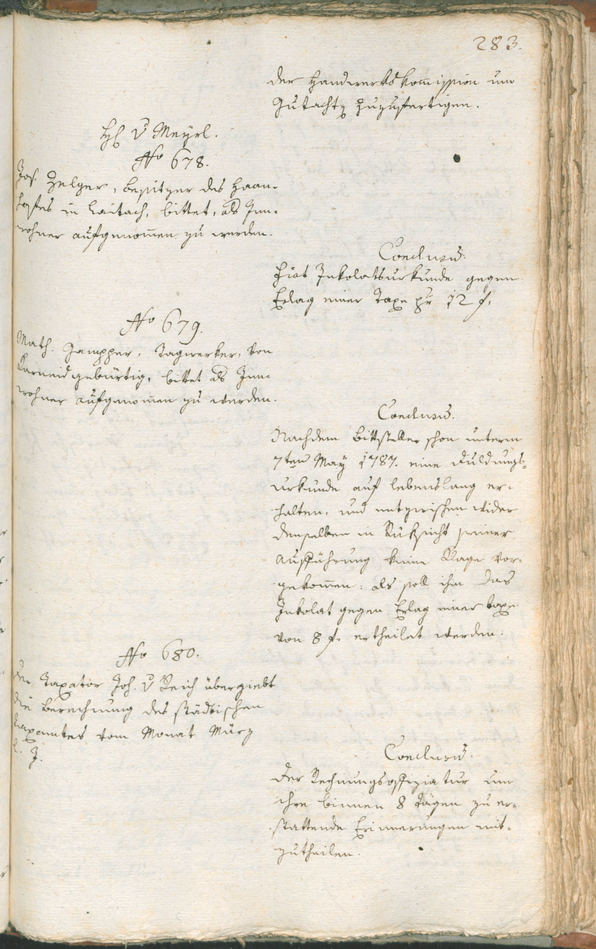 283.
der Handwerkskommission um
Gutachten zuzufertigen.
H. v Meyrl.
No 678.
Jos. Zelger, Besitzer des Haan-
hofes in Leitach, bittet, als Inn-
wohner aufgenommen zu werden.
Conclusum.
Fiat Inkolatsurkunde gegen
Erlag einer Taxe pr 12 f.
No 679.
Math. Gampper, Tagwerker, von
Karneid gebürtig, bittet als Inn-
wohner aufgenommen zu werden.
Conclusum.
Nachdem Bittsteller schon unterm
7ten May 1787. eine Duldungs-
urkunde auf lebenslang er-
halten, und entzwischen wider
denselben in Rücksicht seiner
Aufführung keine Klage vor-
gekommen: als soll ihm das
Inkolat gegen Erlag einer Taxe
von 8 f. ertheilet werden.
No 680.
Der Taxator Joh. v Reich übergiebt
die Berechnung des städtischen
Taxamtes vom Monat März
l. J.
Conclusum.
Der Rechnungsoffiziatur um
ihre binnen 8 Tägen zu er-
stattende Erinnerungen mit-
zutheilen.